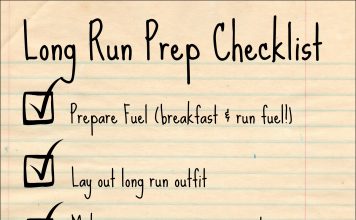 Long Run Prep Checklist
Prepare Fuel (breakfast & run fuel!)
Lay out long run outfit